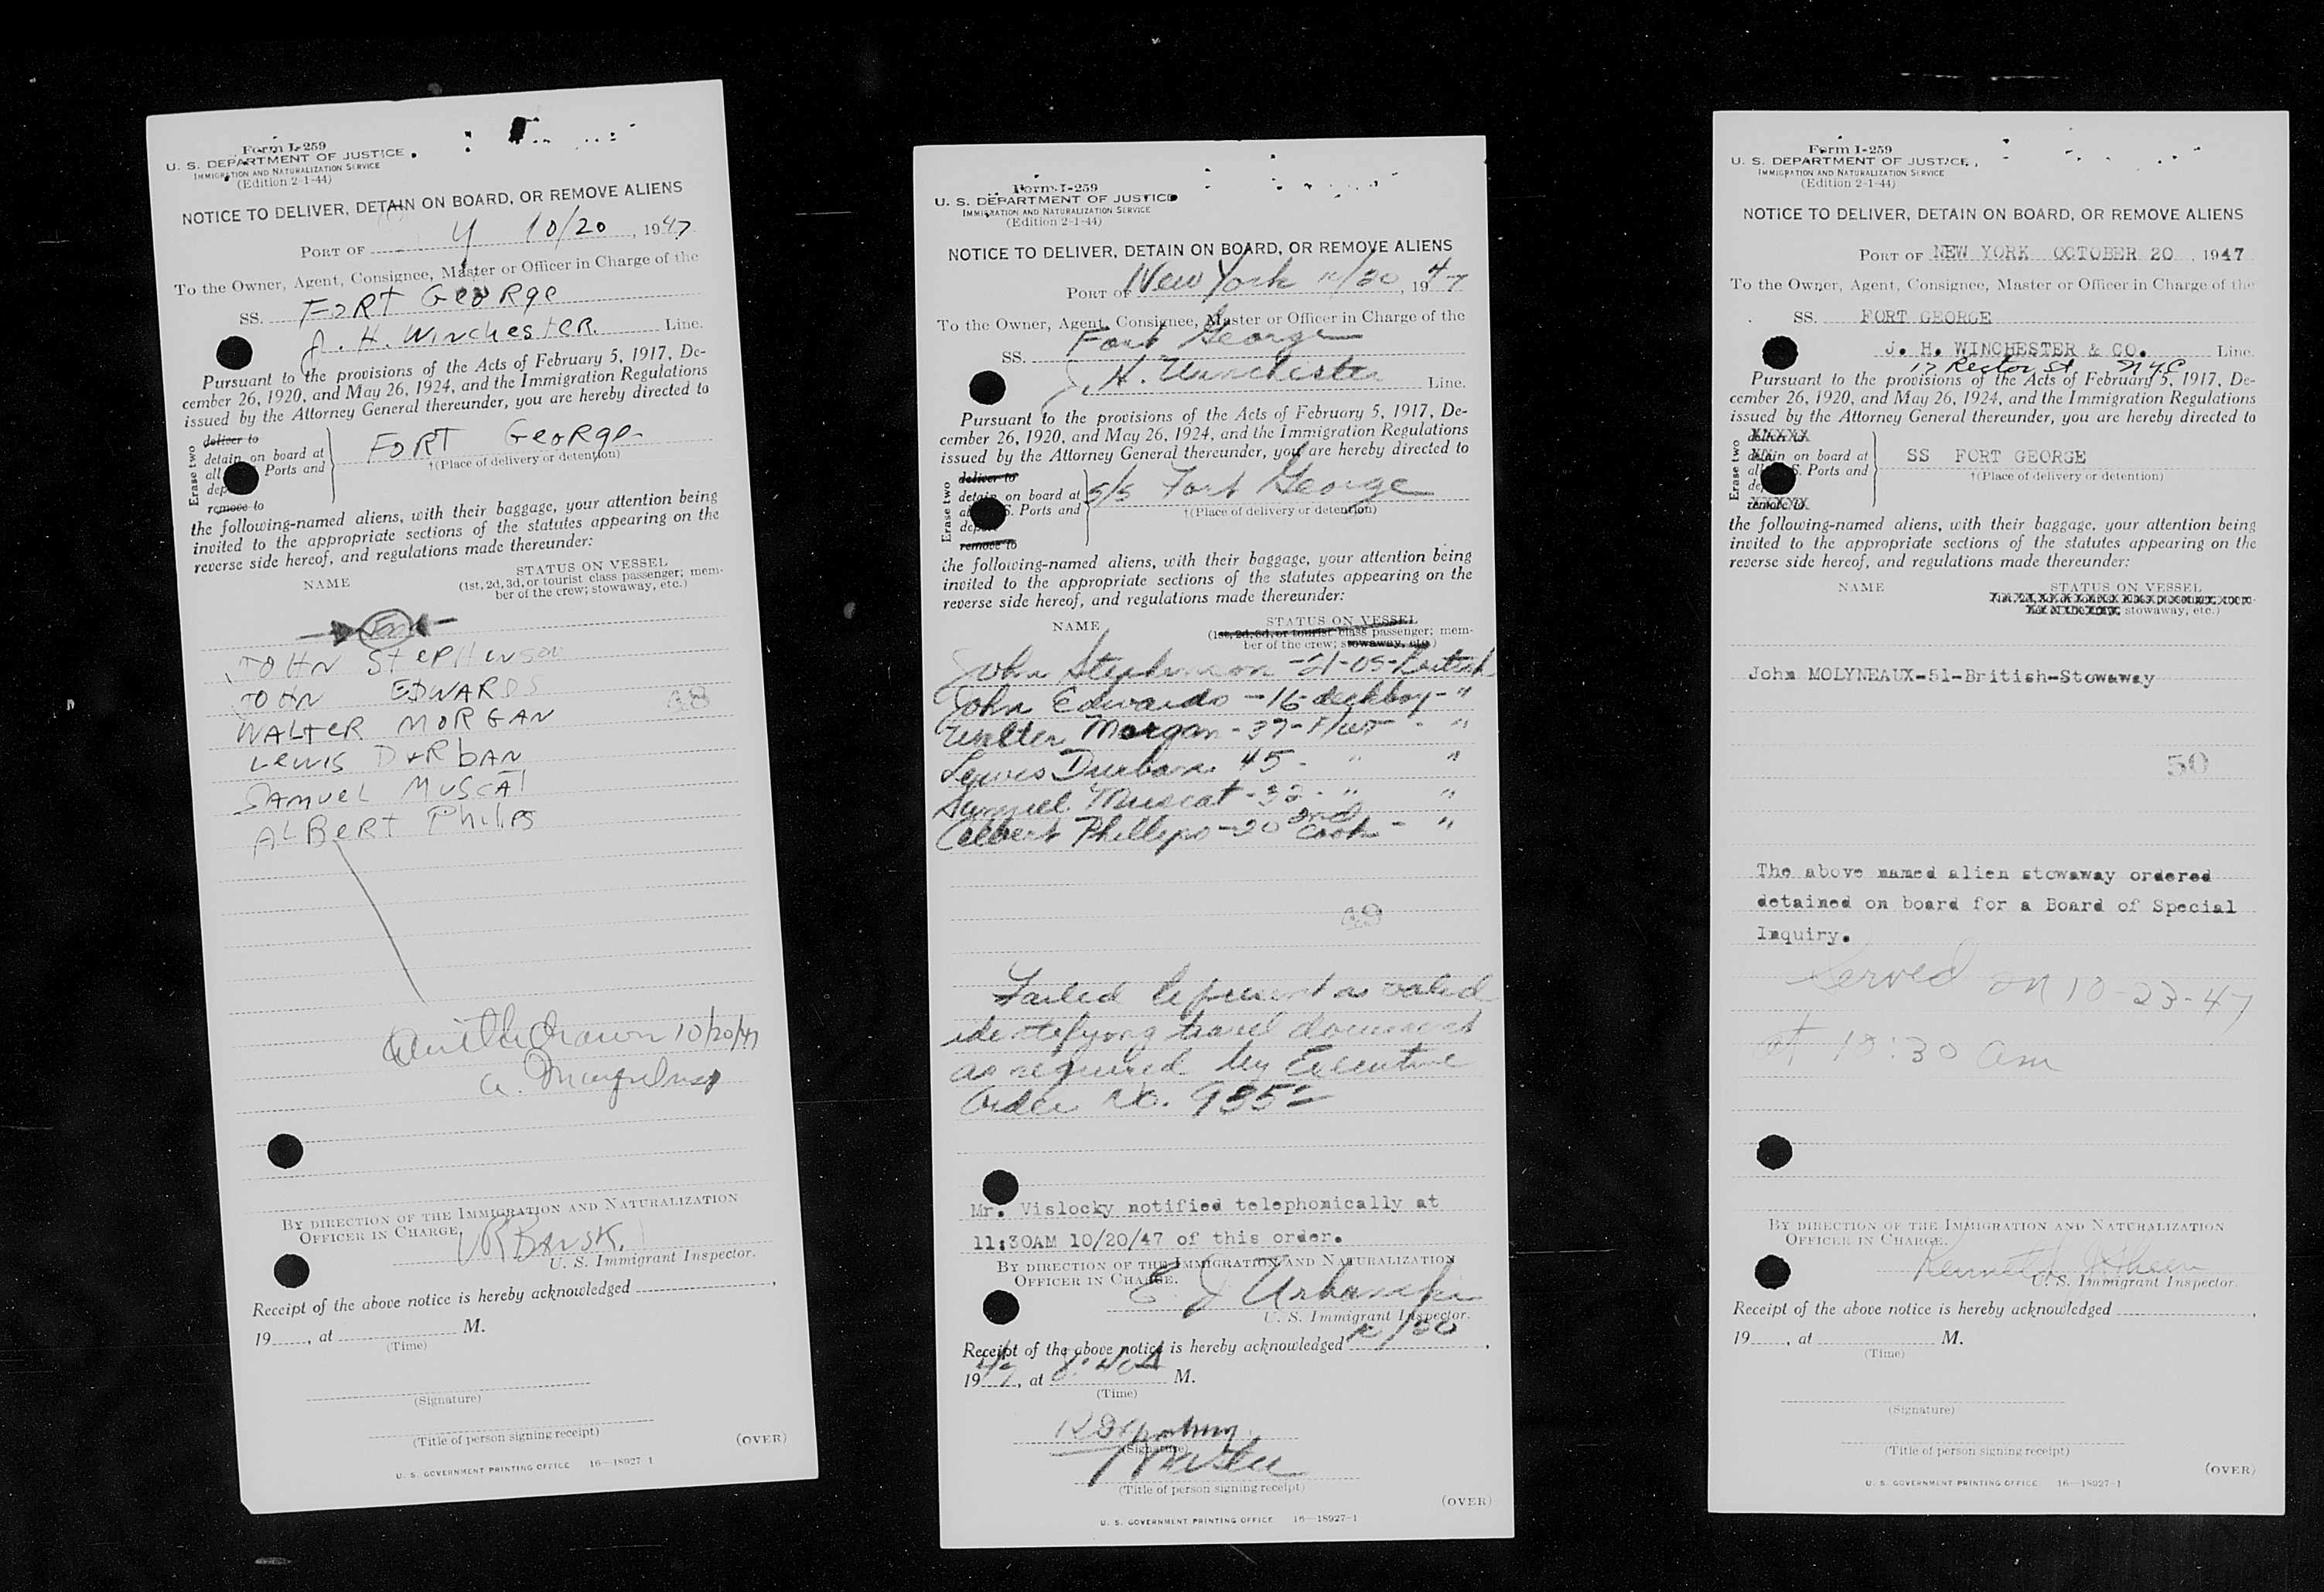 Form I-259
U. S. DEPARTMENT OF JUSTICE
IMMIGRATION AND NATURALIZATION SERVICE
(Edition 2-1-44)
NOTICE TO DELIVER, DETAIN ON BOARD, OR REMOVE ALIENS
PORT OF Y 10/20, 1947
To the Owner, Agent, Consignee, Master or Officer in Charge of the
SS. FORT GeoRge
J. H. WINchesteR. Line.
Pursuant to the provisions of the Acts of February 5, 1917, De-
cember 26, 1920, and May 26, 1924, and the Immigration Regulations
issued by the Attorney General thereunder, you are hereby directed to
Erase two
deliver to
detain on board at
all Ports and
remove to
FORT GeoRge
†(Place of delivery or detention)
the following-named aliens, with their baggage, your attention being
invited to the appropriate sections of the statutes appearing on the
reverse side hereof, and regulations made thereunder:
NAME
STATUS ON VESSEL
(1st, 2d, 3d, or tourist class passenger; mem-
ber of the crew; stowaway, etc.)
JOHN STePHENSON
JOHN EDWARDS
WALTeR MORGAN
LewIS DURbAN
SAMUeL MUSCAT
ALBeRT PhilIPS
Withdrawn 10/20/47
BY DIRECTION OF THE IMMIGRATION AND NATURALIZATION
OFFICER IN CHARGE.
U. S. Immigrant Inspector.
Receipt of the above notice is hereby acknowledged
19, at M.
(Time)
(Signature)
(Title of person signing receipt)
(OVER)
U. S. GOVERNMENT PRINTING OFFICE 16—18927-1
Form I-259
U. S. DEPARTMENT OF JUSTICE
IMMIGRATION AND NATURALIZATION SERVICE
(Edition 2-1-44)
NOTICE TO DELIVER, DETAIN ON BOARD, OR REMOVE ALIENS
PORT OF New York 10/20, 1947
To the Owner, Agent, Consignee, Master or Officer in Charge of the
SS. Fort George
J. H. Winchester Line.
Pursuant to the provisions of the Acts of February 5, 1917, De-
cember 26, 1920, and May 26, 1924, and the Immigration Regulations
issued by the Attorney General thereunder, you are hereby directed to
Erase two
deliver to
detain on board at
S. Ports and
remove to
S/S Fort George
†(Place of delivery or detention)
the following-named aliens, with their baggage, your attention being
invited to the appropriate sections of the statutes appearing on the
reverse side hereof, and regulations made thereunder:
NAME
STATUS ON VESSEL
(1st, 2d, 3d, or tourist class passenger; mem-
ber of the crew; stowaway, etc.)
John Stephenson - 21 - OS - British
John Edwards - 16 - deckboy - "
Walter Morgan - 37 - F/WT - "
Lewis Durban 45 - " "
Samuel Muscat - 32 - " "
Albert Phillips - 20 2nd Cook - "
49
Failed to present a valid
identifying travel document
as required by Executive
Order No. 9352
Mr. Vislocky notified telephonically at
11:30AM 10/20/47 of this order.
BY DIRECTION OF THE IMMIGRATION AND NATURALIZATION
OFFICER IN CHARGE.
E J Urbanski
U. S. Immigrant Inspector.
Receipt of the above notice is hereby acknowledged 10/20,
1947, at 8:40A M.
(Time)
(Signature)
Master
(Title of person signing receipt)
(OVER)
U. S. GOVERNMENT PRINTING OFFICE 16—18927-1
Form I-259
U. S. DEPARTMENT OF JUSTICE
IMMIGRATION AND NATURALIZATION SERVICE
(Edition 2-1-44)
NOTICE TO DELIVER, DETAIN ON BOARD, OR REMOVE ALIENS
PORT OF NEW YORK OCTOBER 20, 1947
To the Owner, Agent, Consignee, Master or Officer in Charge of the
SS. FORT GEORGE
J. H. WINCHESTER & CO. Line.
17 Rector St NYC
Pursuant to the provisions of the Acts of February 5, 1917, De-
cember 26, 1920, and May 26, 1924, and the Immigration Regulations
issued by the Attorney General thereunder, you are hereby directed to
Erase two
detain on board at
S. Ports and
remove to
SS FORT GEORGE
†(Place of delivery or detention)
the following-named aliens, with their baggage, your attention being
invited to the appropriate sections of the statutes appearing on the
reverse side hereof, and regulations made thereunder:
NAME
STATUS ON VESSEL
stowaway, etc.)
John MOLYNEAUX-51-British-Stowaway
50
The above named alien stowaway ordered
detained on board for a Board of Special
Inquiry.
Served on 10-23-47
at 10:30 am
BY DIRECTION OF THE IMMIGRATION AND NATURALIZATION
OFFICER IN CHARGE.
Kenneth J Sheen
U. S. Immigrant Inspector.
Receipt of the above notice is hereby acknowledged
19, at M.
(Time)
(Signature)
(Title of person signing receipt)
(OVER)
U. S. GOVERNMENT PRINTING OFFICE 16—18927-1